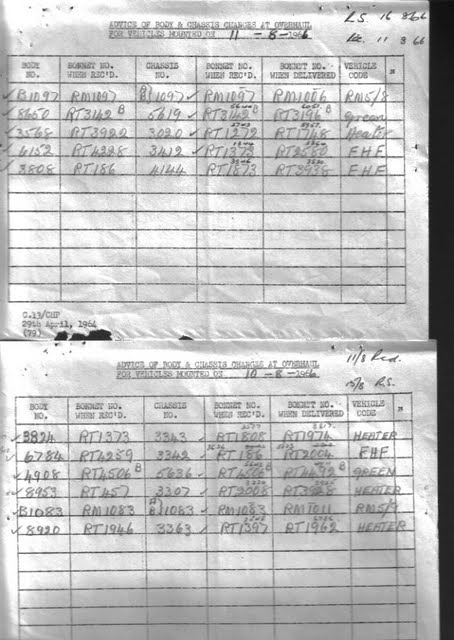 ADVICE OF BODY & CHASSIS CHANGES AT OVERHAUL
FOR VEHICLES MOUNTED ON 11-8-1966
R.S. 16 8 66
11 8 66
BODY NO. BONNET NO. WHEN REC'D. CHASSIS NO. BONNET NO. WHEN REC'D. BONNET NO. WHEN DELIVERED VEHICLE CODE
B1097 RM1097 B1097 RM1097 RM1006 RM5/8
8650 RT3142 B 5619 RT3142 B RT3196 B green
3568 RT3922 3020 RT1272 RT1748 Heater
6152 RT4228 3412 RT1373 RT2582 FHF
3808 RT186 4144 RT1873 RT3938 FHF
C.13/CHP
29th April, 1964
(79)
ADVICE OF BODY & CHASSIS CHANGES AT OVERHAUL
FOR VEHICLES MOUNTED ON 10-8-1966
11/8 Red.
R.S.
BODY NO. BONNET NO. WHEN REC'D. CHASSIS NO. BONNET NO. WHEN REC'D. BONNET NO. WHEN DELIVERED VEHICLE CODE
3824 RT1373 3343 RT1808 RT1974 HEATER
6784 RT4259 3342 RT186 RT2004 FHF
4908 RT4506 B 5636 RT4506 B RT4492 B green
8953 RT457 3307 RT2008 RT3928 HEATER
B1083 RM1083 B1083 RM1083 RM1011 RM5/9
8920 RT1946 3363 RT1397 RT1962 HEATER